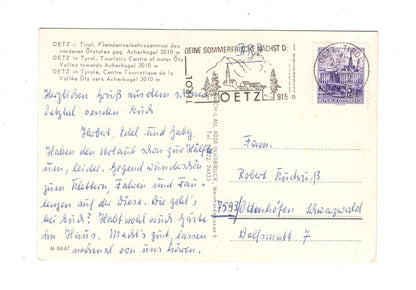 OETZ i. Tirol, Fremdenverkehrszentrum des
vorderen Ötztales geg. Acherkogel 3010 m
OETZ in Tyrol, Touristic Centre of outer Ötz
Valley towards Acherkogel 3010 m
OETZ in Tyrole, Centre Touristique de la
Vallée Ötz vers Acherkogel 3010 m
DEINE SOMMERFRISCHE NÄCHST D
TIROL
OETZ
915 m
REPUBLIK ÖSTERREICH
Herzlichen Gruß aus dem schönen
Oetztal senden Euch
Herbert, Edel und Gaby.
Haben den Urlaub schon zur Hälfte
um, leider. Gegend wunderschön
zum Klettern, Fahren und
auf der Diese. Wie geht's
bei Euch? Habt wohl auch Gäste
im Haus. Macht's gut, lassen
nochmal von uns hören.
Fam.
Robert
7593 Ottenhöfen Schwarzwald
Wolfsmatt 7
6020 INNSBRUCK
M 6647